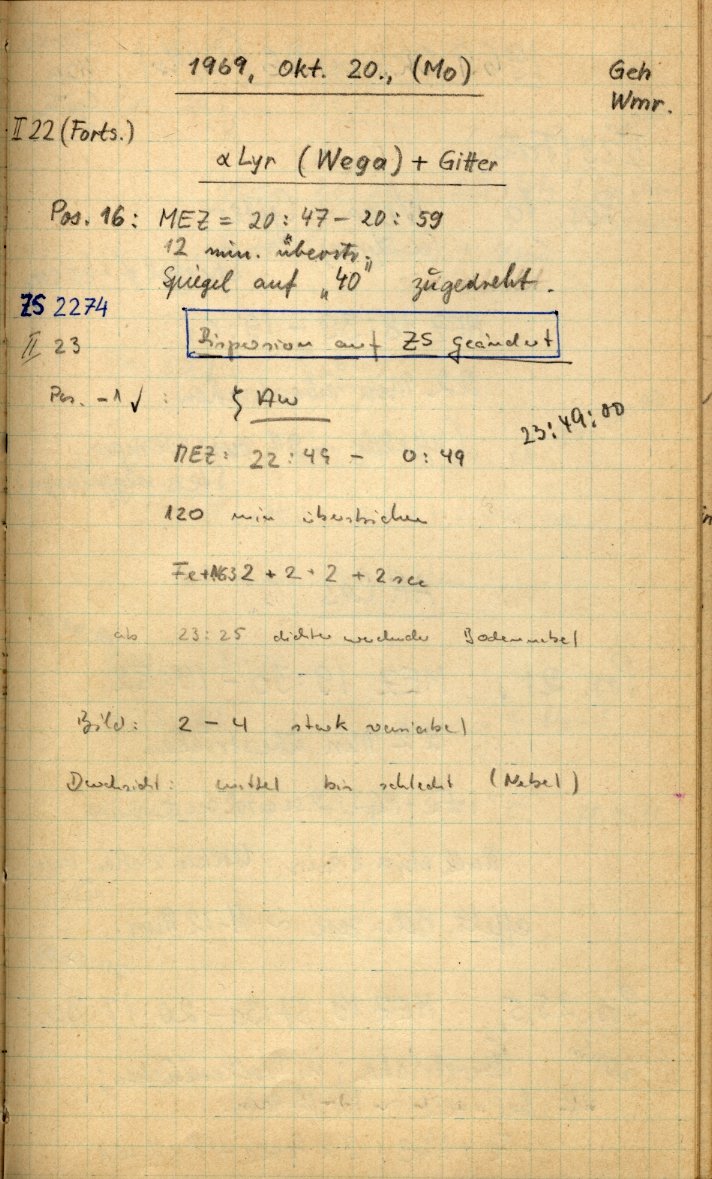 1969, Okt. 20., (Mo)
Geh
Wmr.
II 22 (Forts.)
α Lyr (Wega) + Gitter
Pos. 16: MEZ = 20:47 – 20:59
12 min. überstr.
Spiegel auf „40“ zugedreht.
ZS 2274
II 23
Dispersion auf ZS geändert
Pos. -1 ✓ : ζ Aur
23:49:00
MEZ: 22:49 – 0:49
120 min überstrichen
2 + 2 + 2 + 2 sec
ab 23:25 dichter werdender Bodennebel
Bild: 2 – 4 stark variabel
Durchsicht: mittel bis schlecht (Nebel)